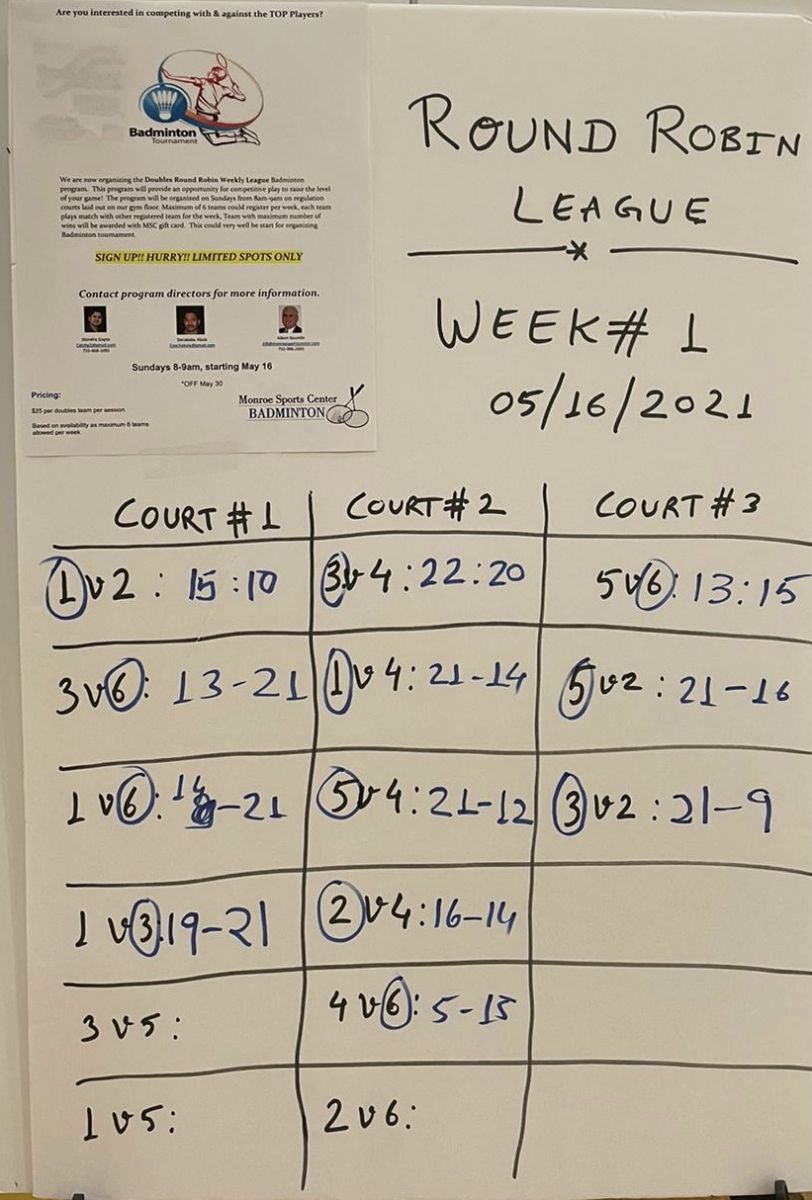 Are you interested in competing with & against the TOP Players?
Badminton
Tournament
We are now organizing the Doubles Round Robin Weekly League Badminton
program. This program will provide an opportunity for competitive play to raise the level
of your game! The program will be organized on Sundays from 8am-9am on regulation
courts laid out on our gym floor. Maximum of 6 teams could register per week, each team
plays match with other registered team for the week, Team with maximum number of
wins will be awarded with MSC gift card. This could very well be start for organizing
Badminton tournament.
SIGN UP!! HURRY!! LIMITED SPOTS ONLY
Contact program directors for more information.
Sundays 8-9am, starting May 16
*OFF May 30
Pricing:
$25 per doubles team per session
Based on availability as maximum 6 teams
allowed per week
Monroe Sports Center
BADMINTON
ROUND ROBIN
LEAGUE
WEEK# 1
05/16/2021
COURT #1 COURT #2 COURT #3
1 v 2 : 15:10 3 v 4 : 22:20 5 v 6 : 13:15
3 v 6 : 13-21 1 v 4 : 21-14 5 v 2 : 21-16
1 v 6 : 14-21 5 v 4 : 21-12 3 v 2 : 21-9
1 v 3 : 19-21 2 v 4 : 16-14
3 v 5 : 4 v 6 : 5-15
1 v 5 : 2 v 6 :